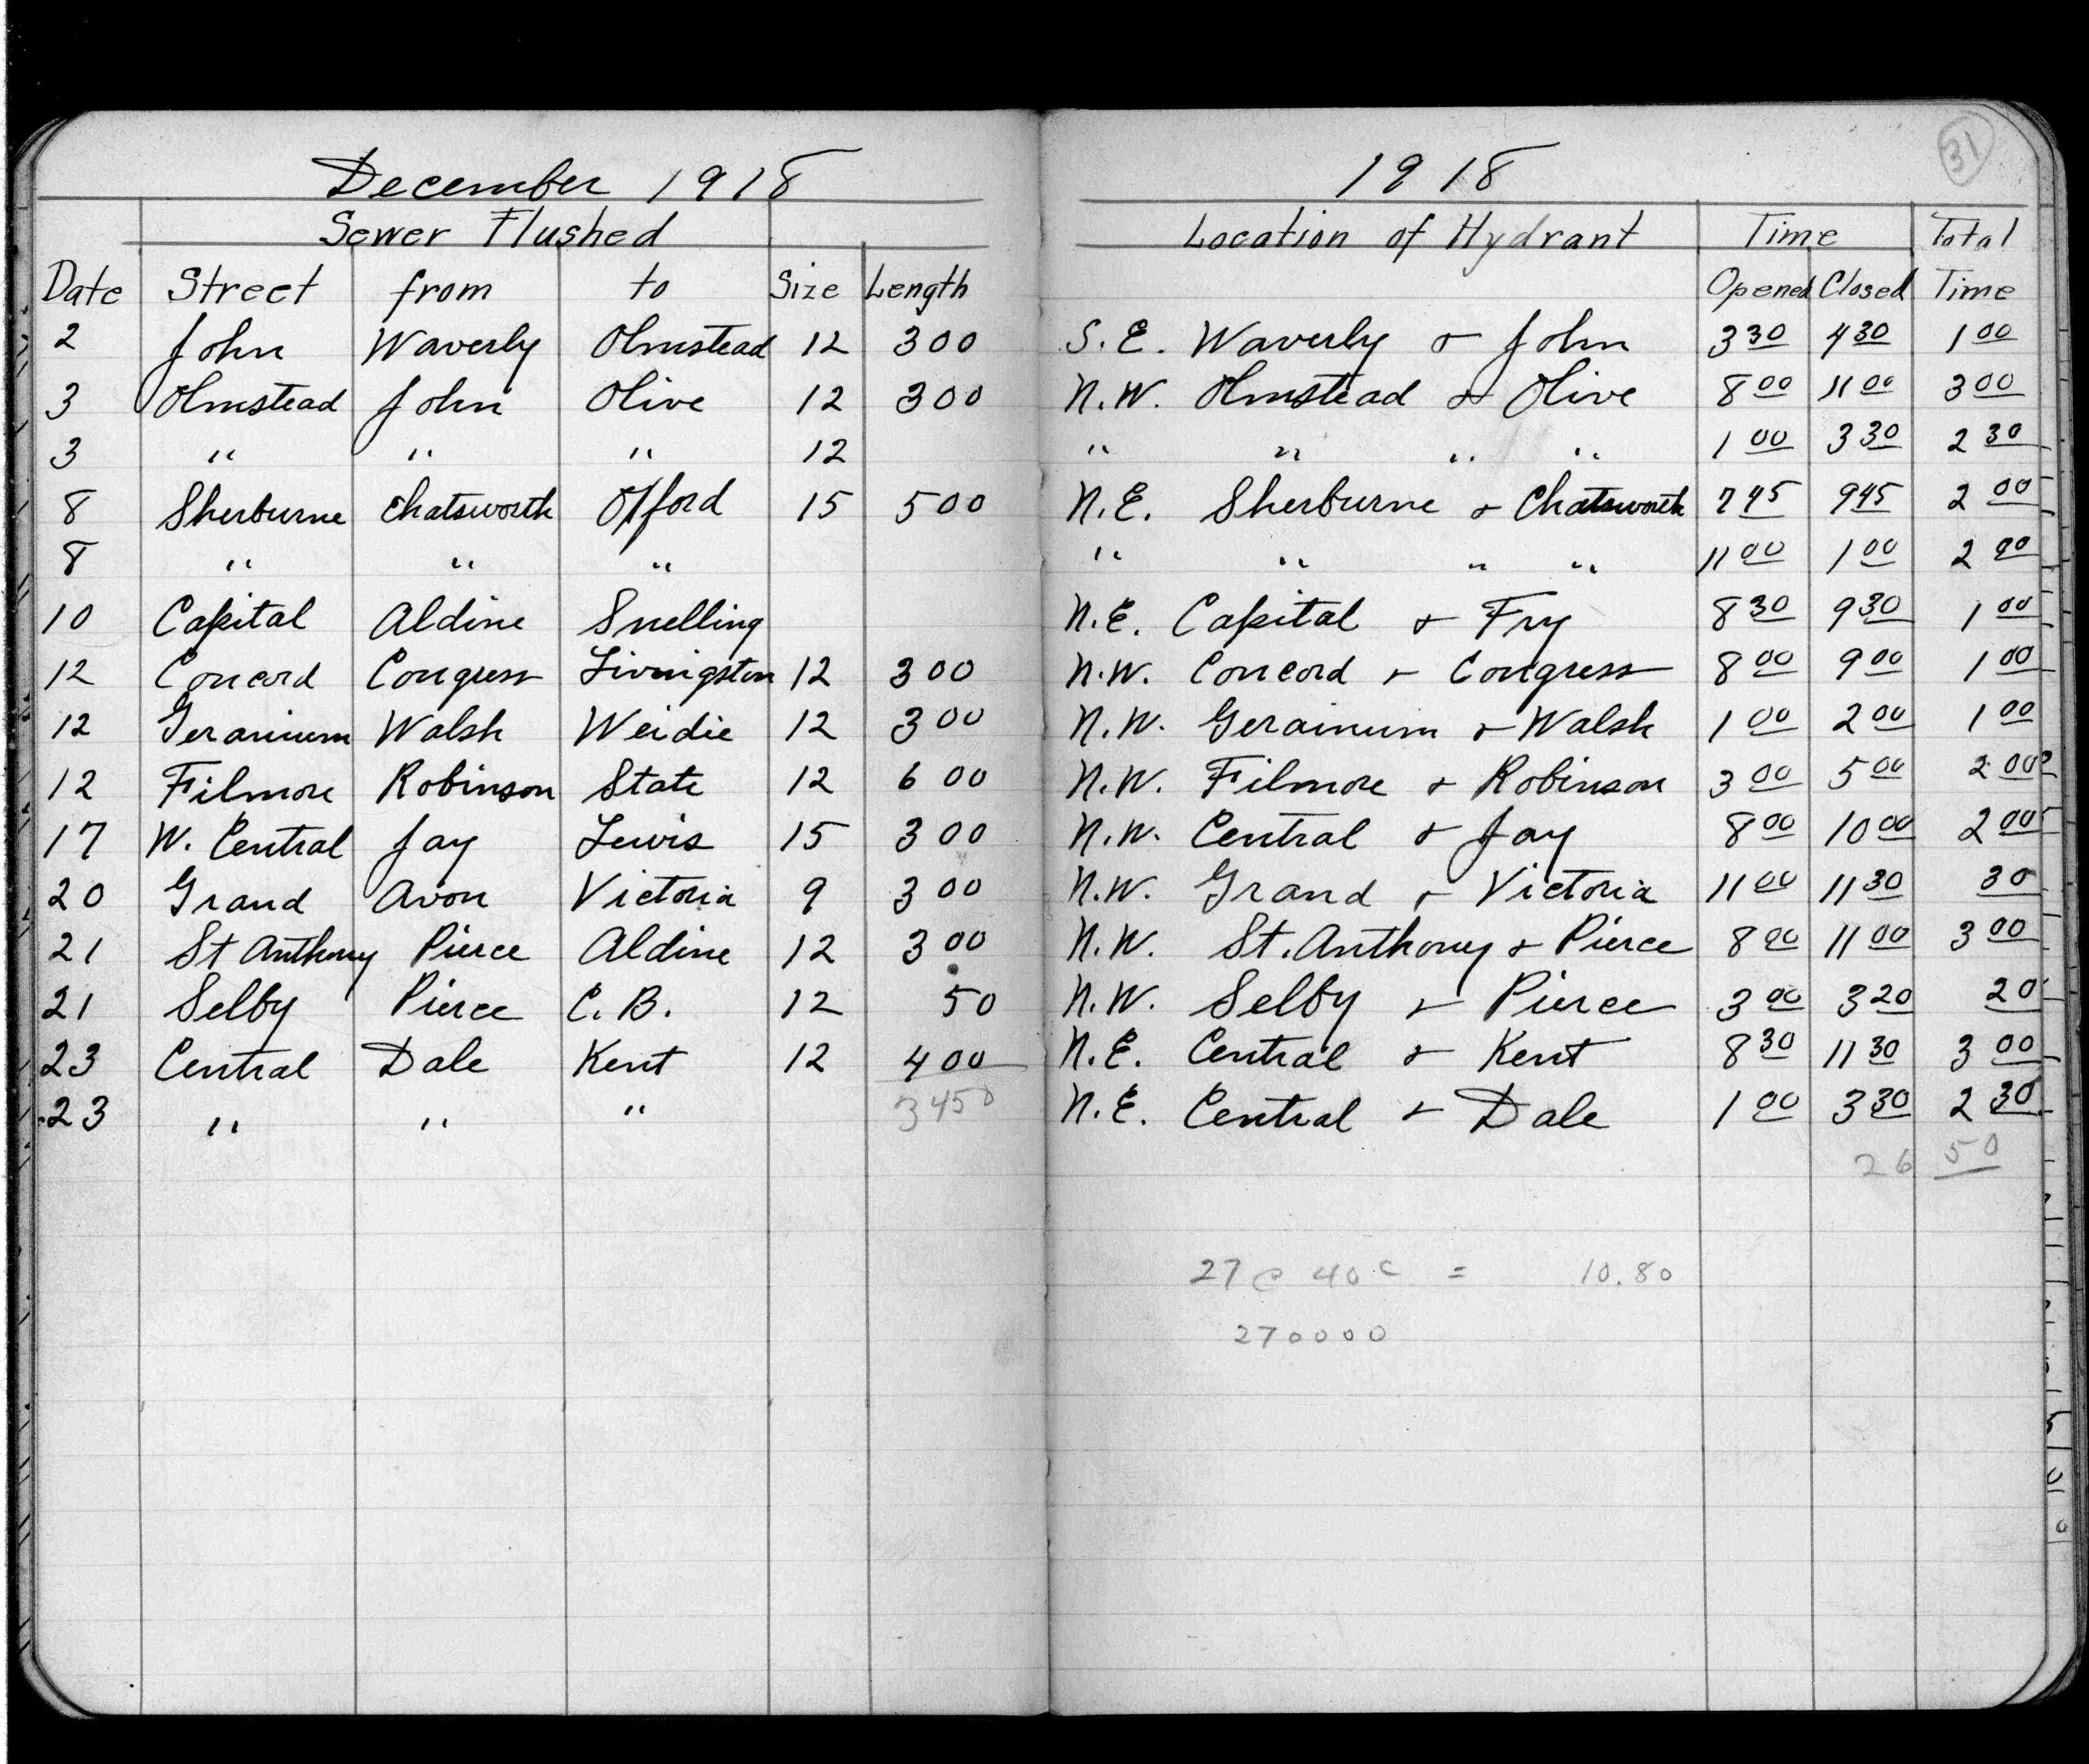 December 1918
Sewer Flushed
Date Street from to Size Length
2 John Waverly Olmstead 12 300
3 Olmstead John Olive 12 300
3 " " " 12
8 Sherburne Chatsworth Oxford 15 500
8 " " "
10 Capital Aldine Snelling
12 Concord Congress Livingston 12 300
12 Geranium Walsh Weidie 12 300
12 Filmore Robinson State 12 600
17 W. Central Jay Lewis 15 300
20 Grand Avon Victoria 9 300
21 St Anthony Pierce Aldine 12 300
21 Selby Pierce C. B. 12 50
23 Central Dale Kent 12 400
23 " " " 3450
31
1918
Location of Hydrant Time Total
Opened Closed Time
S. E. Waverly & John 3 30 4 30 1 00
N. W. Olmstead & Olive 8 00 11 00 3 00
" " " " 1 00 3 30 2 30
N. E. Sherburne & Chatsworth 7 45 9 45 2 00
" " " " 11 00 1 00 2 00
N. E. Capital & Fry 8 30 9 30 1 00
N. W. Concord & Congress 8 00 9 00 1 00
N. W. Gerainum & Walsh 1 00 2 00 1 00
N. W. Filmore & Robinson 3 00 5 00 2 00
N. W. Central & Jay 8 00 10 00 2 00
N. W. Grand & Victoria 11 00 11 30 30
N. W. St. Anthony & Pierce 8 00 11 00 3 00
N. W. Selby & Pierce 3 00 3 20 20
N. E. Central & Kent 8 30 11 30 3 00
N. E. Central & Dale 1 00 3 30 2 30
26 50
27 @ 40 c = 10.80
270000